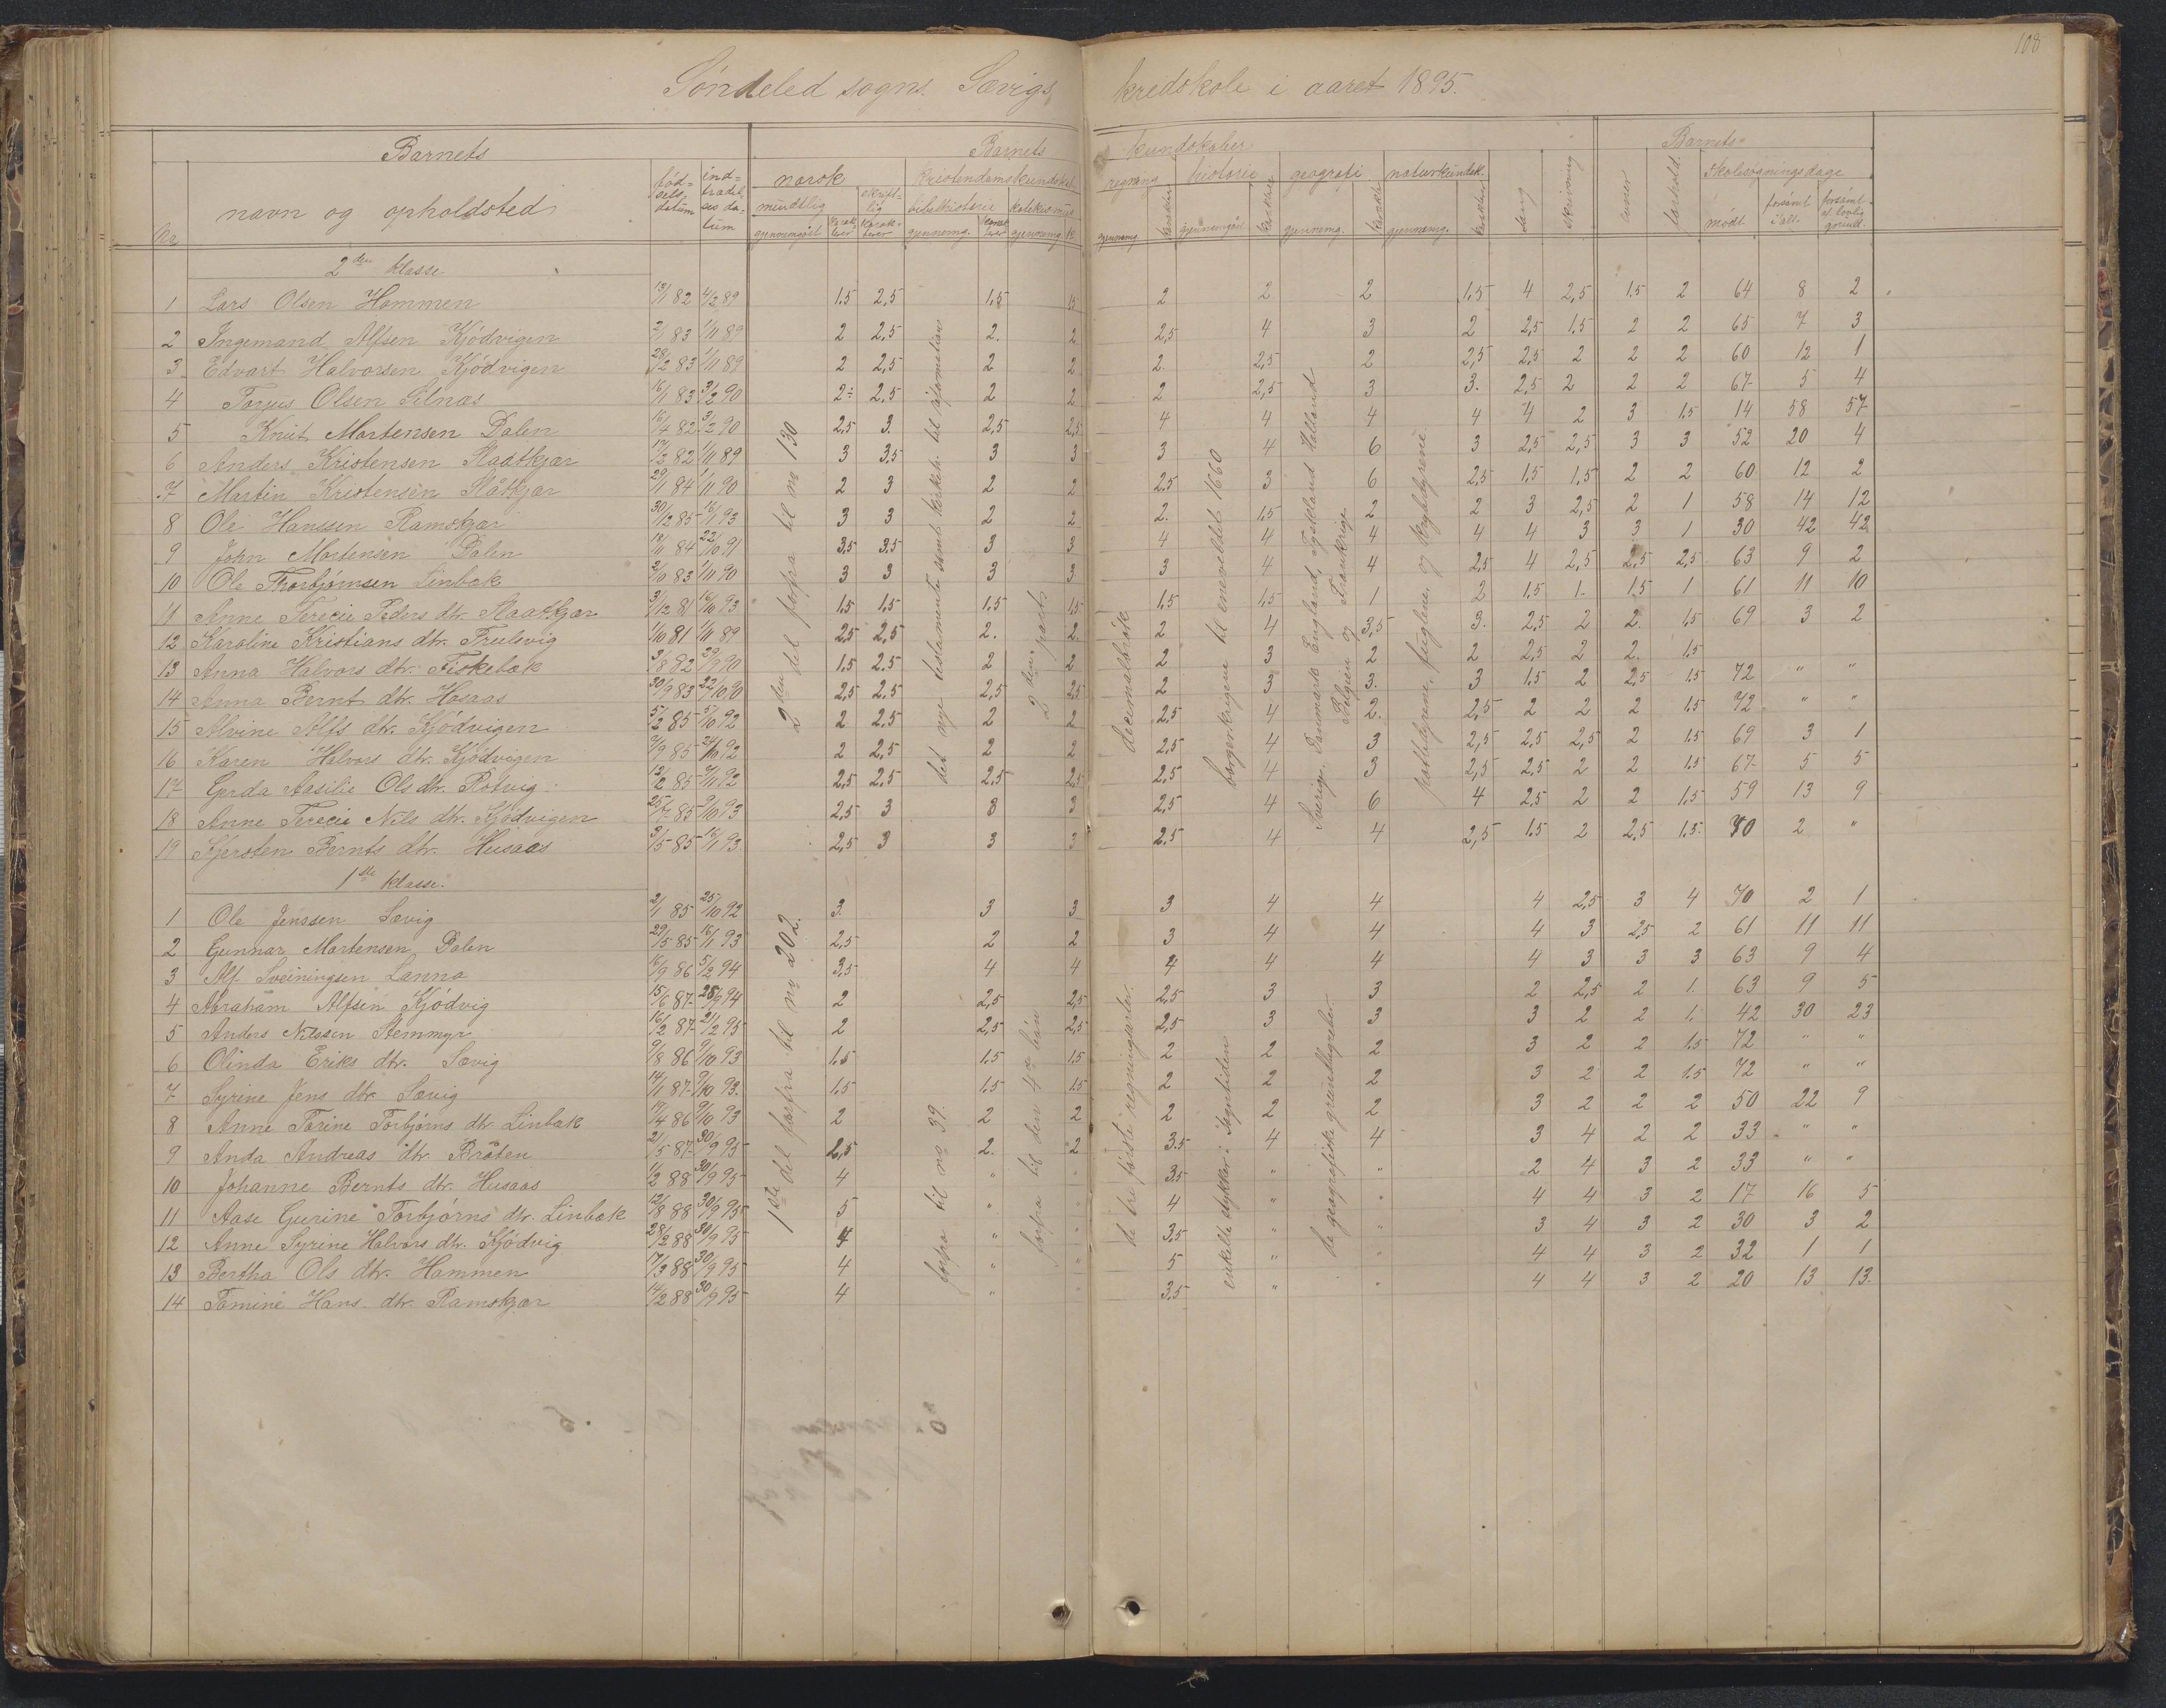 108
Søndeled sogns. Sævigs kredskole i aaret 1895.
Barnets Barnets kundskaber Barnets
No navn og opholdsted fødselsdatum indtrædelsesdatum norsk kristendomskundskab regning historie geografi naturkundsk. sang skrivning evner forhold skolesøgningsdage
mundtlig skriftlig bibelhistorie katekismus mødt forsømt i alt. forsømt af lovlig grund.
gjennemgået karakterer karakterer gjennemg. karakterer gjennemg. k. gjennemg. karakter gjennemgået karakter gjennemg. karakt gjennemg. karakter
2den klasse
1 Lars Olsen Hammen 13/1 82 4/2 89 1.5 2,5 1.5 1.5 2 2 2 1.5 4 2,5 1.5 2 64 8 2
2 Ingemand Alfsen Kjödvigen 2/1 83 1/11 89 2 2,5 2. 2 2,5 4 3 2 2,5 1.5 2 2 65 7 3
3 Edvart Halvorsen Kjödvigen 28/2 83 1/11 89 2 2,5 2 2 2. 2,5 2 2,5 2,5 2 2 2 60 12 1
4 Torjus Olsen Silnæs 16/1 83 3/2 90 2 2,5 2 2 2 2,5 3 3. 2,5 2 2 2 67 5 4
5 Knut Martensen Dalen 16/4 82 3/2 90 2.5 3. 2,5 2,5 4 4 4 4 4 2 3 1.5 14 58 57
6 Anders Kristensen Staatkjær 17/2 82 1/11 89 3 3.5 3 3 3 4 6 3 2,5 2,5 3 3 52 20 4
7 Martin Kristensen Ståtkjær 29/1 84 1/11 90 2 3 2 2 2.5 3 6 2.5 1.5 1.5 2 2 60 12 2
8 Ole Hanssen Ramskjær 30/12 85 16/1 93 3 3 2 2 2. 1.5 2 2 3 2,5 2 1 58 14 12
9 John Mortensen Dalen 18/11 84 22/10 91 3.5 3.5 3 3 4 4 4 4 4 3 3 1 30 42 42
10 Ole Thorbjørnsen Linbæk 2/10 83 1/11 90 3 3 3 3 3 4 4 2.5 4 2,5 2,5 2,5 63 9 2
11 Anne Terecie Peders dtr. Staatkjær 3/12 81 16/10 93 1.5 1.5 1.5 1.5 1.5 1.5 1 2 1.5 1. 1.5 1 61 11 10
12 Karoline Kristians dtr. Trulsvig 1/10 81 1/11 89 2.5 2,5 2. 2. 2 4 3,5 3. 2,5 2 2. 1.5 69 3 2
13 Anna Halvors dtr. Fiskebæk 3/8 82 29/9 90 1.5 2.5 2 2 2 3 2 2 2,5 2 2. 1.5
14 Anna Bernt dtr. Husaas 30/9 83 22/10 90 2,5 2.5 2,5 2,5 2 3 3. 3 1.5 2 2,5 1.5 72 " "
15 Alvine Alfs dtr. Kjödvigen 5/2 85 5/10 92 2 2.5 2 2 2.5 4 2. 2,5 2 2 2 1.5 72 " "
16 Karen Halvors dtr. Kjödvigen 2/9 85 24/10 92 2 2,5 2 2 2,5 4 3 2,5 2,5 2,5 2 1.5 69 3 1
17 Gerda Aasilie Ols dtr. Rotvig 12/2 85 2/11 92 2,5 2,5 2,5 2,5 2,5 4 3 2,5 2,5 2 2 1.5 67 5 5
18 Anne Terecie Nils dtr. Kjödvigen 25/7 85 9/10 93 2,5 3 3 3 2,5 4 6 4 2,5 2 2 1.5 59 13 9
19 Kjersten Bernts dtr. Husaas 3/5 85 16/1 93. 2,5 3 3 3 2.5 4 4 2,5 1.5 2 2,5 1.5 70 2 "
2den del forfra til no 130
det nye testamente samt kirkeh. til reformation
2den part
decimalbrøk
borgerkrigene til eneveldet 1660
Sverige. Danmark England, Tyskland Holland Belgien og Frankrige
pattedyrene, fuglene, og krybdyrene
1ste klasse.
1 Ole Jenssen Sævig 2/1 85 25/10 92 3. 3 3 3 4 4 4 2,5 3 4 70 2 1
2 Gunnar Martensen Dalen 29/5 85 16/1 93 2,5 2 2 3 4 4 4 3 2,5 2 61 11 11
3 Alf Sveiningsen Lanna 16/9 86 5/2 94 3,5 4 4 4 4 4 4 3 3 3 63 9 4
4 Abraham Alfsen Kjödvig 15/6 87 25/9 94 2 2,5 2,5 2,5 3 3 2 2,5 2 1. 63 9 5
5 Anders Nilssen Stemmyr 16/2 87 21/2 95 2 2,5 2,5 2,5 3 3 3 2 2 1. 42 30 23
6 Olinda Eriks dtr. Sævig 9/8 86 9/10 93 1.5 1.5 1.5 2 2 2 3 2 2 1.5 72 " "
7 Syrine Jens dtr. Sævig 14/1 87 9/10 93. 1.5 1.5 1.5 2 2 2 3 2 2 1.5 72 " "
8 Anne Torine Torbjørns dtr. Linbæk 17/4 86 9/10 93 2 2 2 2 2 2 3 2 2 2 50 22 9
9 Anda Andreas dtr. Bråten 21/5 87 30/9 95 2,5 2. 2 3.5 4 4 3 4 2 2 33 " "
10 Johanne Bernts dtr. Husaas 1/2 88 30/9 95 4 " 3.5 " " 2 4 3 2 33 " "
11 Aase Gurine Torbjørns dtr. Linbæk 12/8 88 30/9 95 5 " 4 " " 4 4 3 2 17 16 5
12 Anne Syrine Halvors dtr. Kjödvig 28/2 88 30/9 95 4 " 3,5 " " 3 4 3 2 30 3 2
13 Bertha Ols dtr. Hammen 17/3 88 30/9 95 4 " 5 " " 4 4 3 2 32 1 1
14 Tomine Hans dtr. Ramskjær 14/2 88 30/9 95 4 " 3.5 " " 4 4 3 2 20 13 13.
1ste del forfra til no 202.
forfra til no 39.
forfra til den 4de bøn
de tre første regningsarter.
enkelte stykker i sagntiden
de geografiske grundbegreber